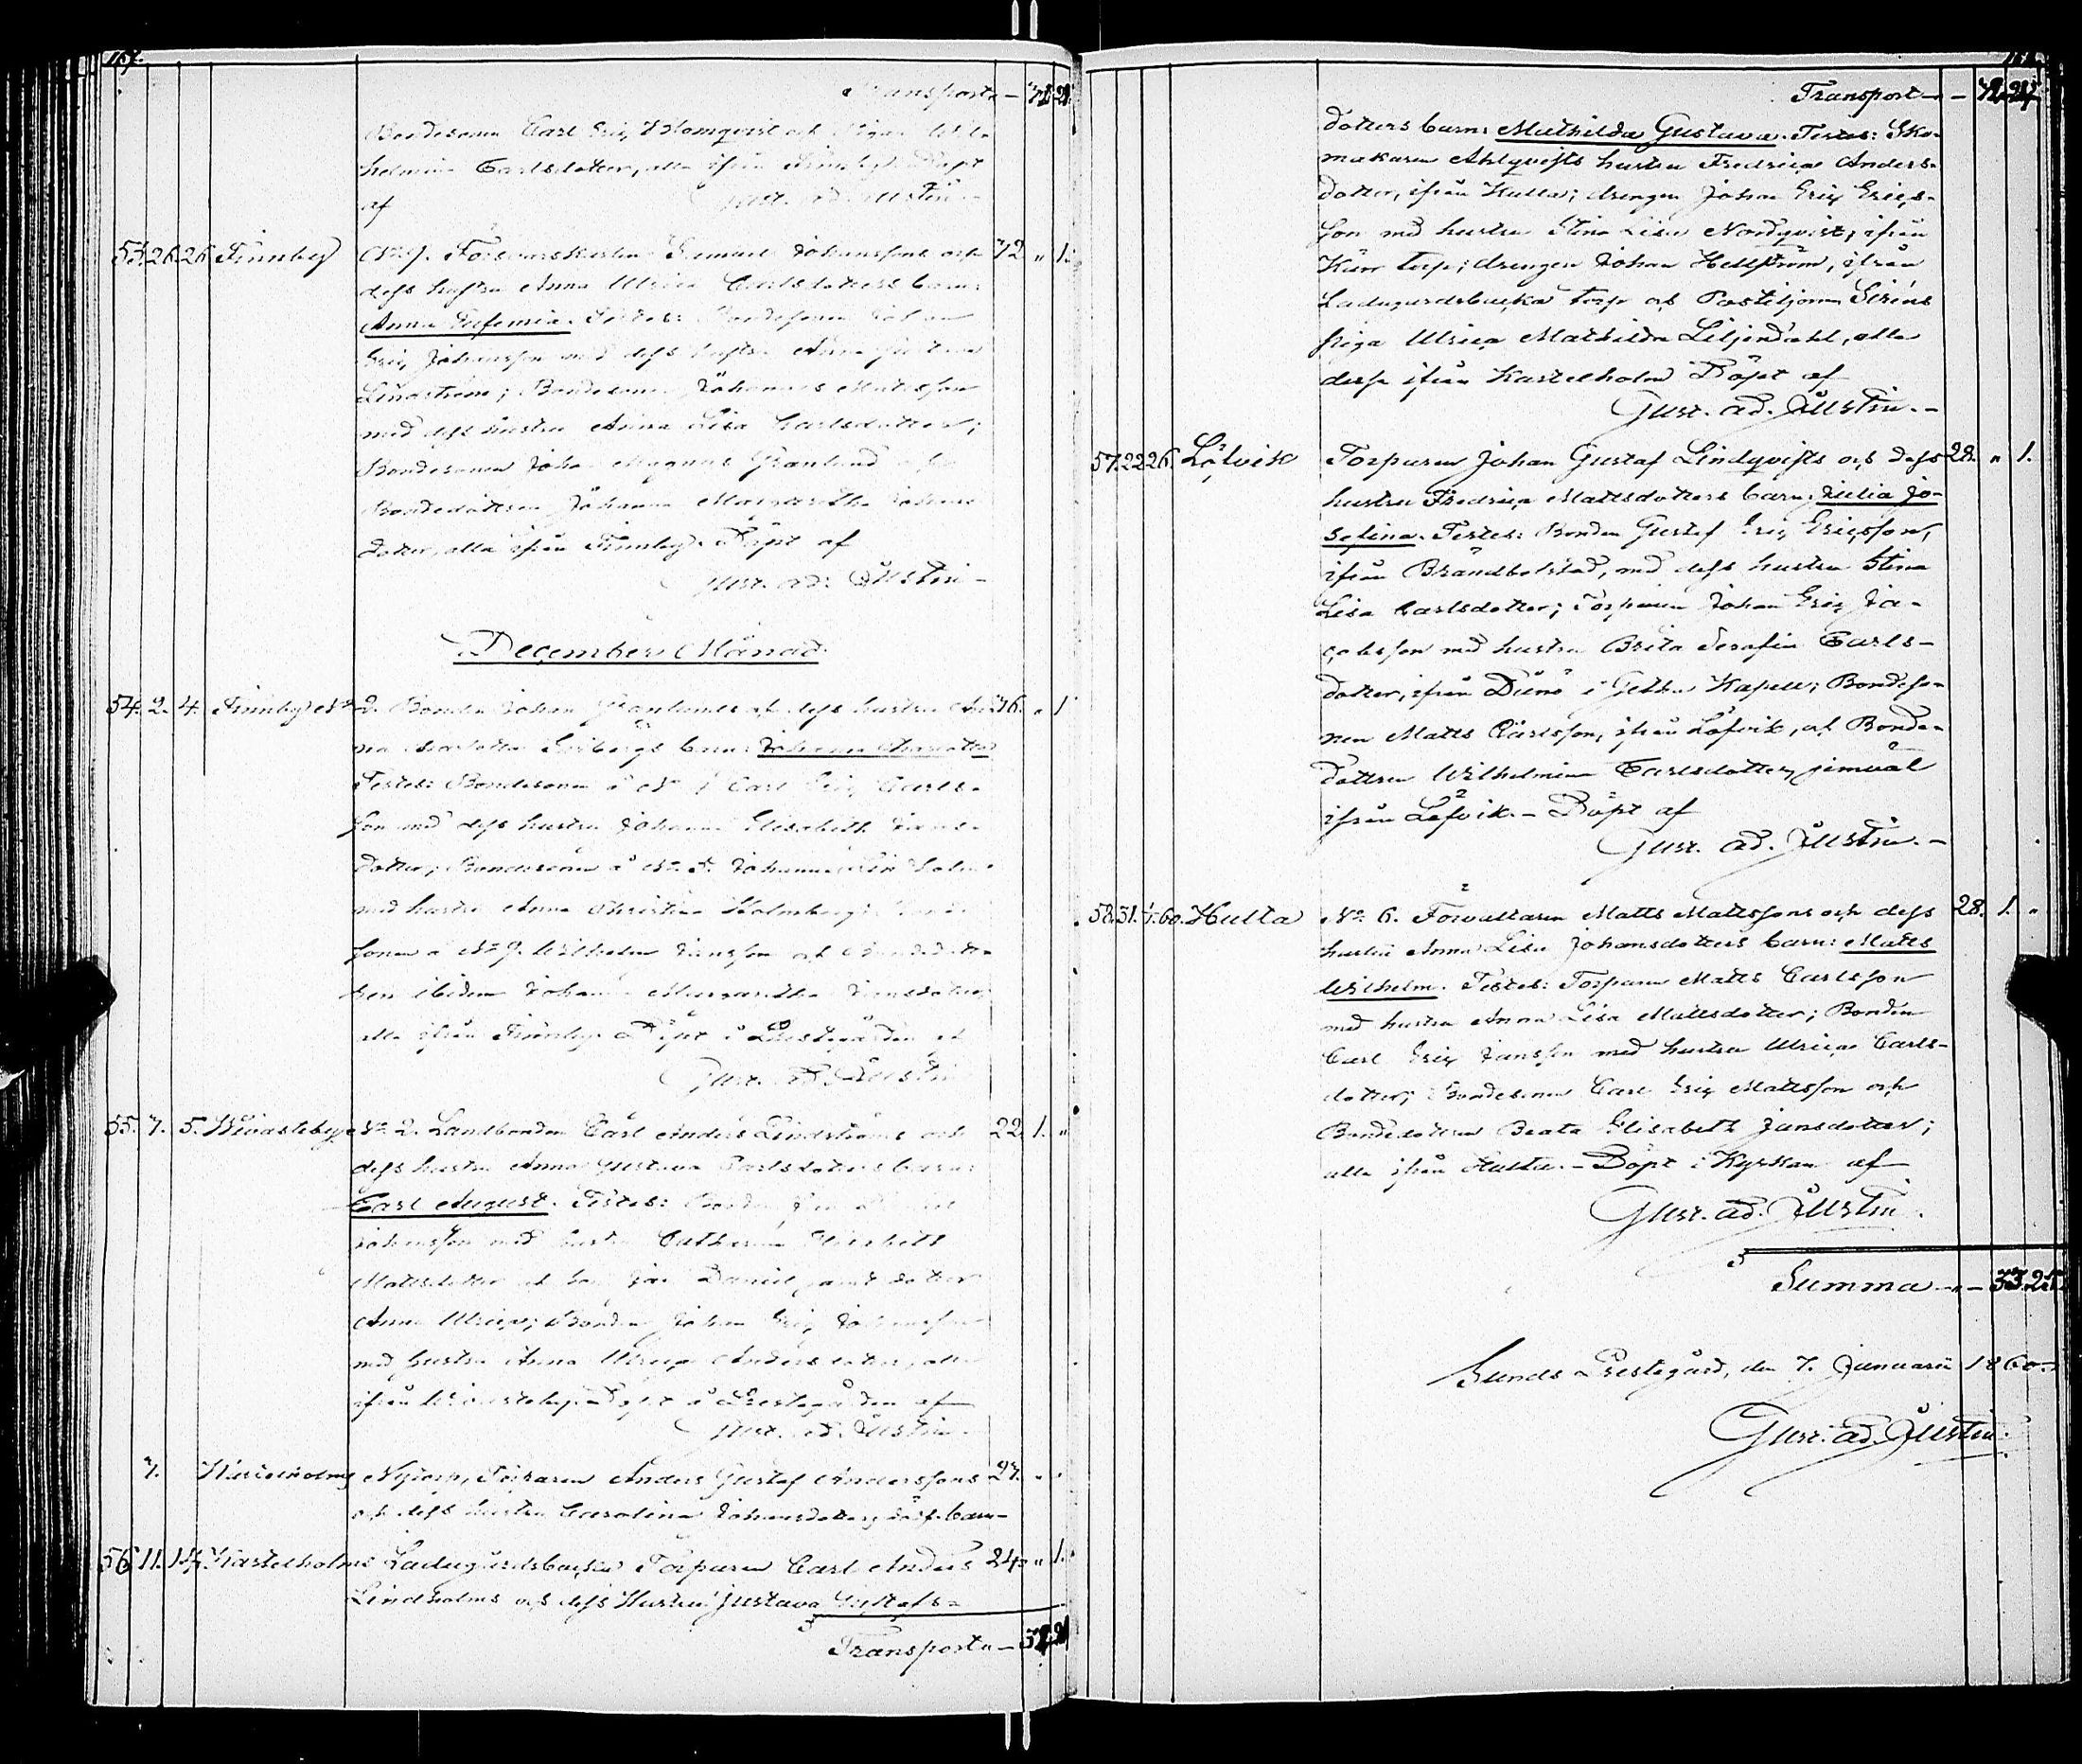 Transport — 
Bondesonen Carl Eric Blomqvist och Pigan Wil-
helmina Carlsdotter, alla ifrån Finnby. Döpt
af Gust. Ad. Justin.
53. 26. 26. Finnby No 9. Försvarskarlen Samuel Johanssons och 42. " 1.
dess hustru Anna Ulrica Carlsdotters barn:
Anna Eufemia. Testes: Bondesonen Johan
Eric Johansson med dess hustru Anna Gustava
Lindström; Bondesonen Johannes Matsson
med dess hustru Anna Lisa Carlsdotter;
Bondesonen Johan Magnus Granlund och
Bondedottren Johanna Margaretha Johans-
dotter, alla ifrån Finnby. Döpt af
Gust. Ad. Justin —
December Månad.
54. 2. 4. Finnby No 2. Bonden Johan Granlunds och dess hustru An- 36. " 1
na Charlotta barn: Johanna Charlotta
Testes: Bondesonen å No 1 Carl Eric Carls-
son med dess hustru Johanna Elisabeth Jans-
dotter; Bondesonen å No 5. Johannes
med hustru Anna Christina Holmberg; Bonde-
sonen å No 9. Wilhelm Jansson och Bondedott-
ren ibidem Johanna Margaretha Jansdotter,
alla ifrån Finnby. Döpt i Prestegården af
Gust. Ad. Justin
55. 7. 5. Wivasteby No 2. Landbonden Carl Anders Lindströms och 22. 1. "
dess hustru Anna Gustava Carlsdotters barn:
Carl August. Testes: Bonden
Johansson med hustru Catharina Elisabeth
Mattsdotter och son Jan Daniel, samt dotter
Anna Ulrica; Bonden Johan Eric Johansson
med hustru Anna Ulrica Andersdotter, alla
ifrån Wivasteby. Döpt i Prestegården af
Gust. Ad. Justin.
7. Kastelholms Nytorp, Torparen Anders Gustaf Anderssons 27. " .
och dess hustru Carolina Johansdotters dödf. barn —
56. 11. 14. Kastelholms Ladugårdsbacka Torparen Carl Anders 24. " 1.
Lindholms och dess Hustru Gustava Gustafs-
Transport —
Transport —
dotters barn: Mathilda Gustava. Testes: Sko-
makaren Ahlqvists hustru Fredrica Anders-
dotter, ifrån Hulta; drengen Johan Eric Erics-
son med hustru Stina Lisa Nordqvist, ifrån
Kärr torp; drengen Johan Hellström, ifrån
Ladugårdsbacka torp och Postiljonen Siréns
piga Ulrica Mathilda Liljendahl, alla
desse ifrån Kastelholm Döpt af
Gust. Ad. Justin. —
57. 22. 26. Löfvik Torparen Johan Gustaf Lindqvists och dess 28. " 1.
hustru Fredrica Mattsdotters barn: Julia Jo-
sefina. Testes: Bonden Gustaf Eric Ericsson,
ifrån Brändbolstad, med dess hustru Stina
Lisa Carlsdotter; Torparen Johan Eric Ja-
cobsson med hustru Brita Serafia Carls-
dotter, ifrån Dånö i Getha Kapell; Bondeso-
nen Matts Carlsson, ifrån Löfvik, och Bonde-
dottren Wilhelmina Carlsdotter, jemväl
ifrån Löfvik. — Döpt af
Gust. Ad. Justin. —
58. 31. 1/1.60. Hulta No. 6. Förvaltaren Matts Mattssons och dess 28. 1. "
hustru Anna Lisa Johansdotters barn: Matts
Wilhelm. Testes: Torparen Matts Carlsson
med hustru Anna Lisa Mattsdotter; Bonden
Carl Eric Jansson med hustru Ulrica Carls-
dotter; Bondesonen Carl Eric Mattsson och
Bondedottren Beata Elisabeth Jansdotter;
alla ifrån Hulta. — Döpt i Kyrkan af
Gust. Ad. Justin.
Summa — 33. 25.
Sunds Prestegård, den 7. Januarii 1860. —
Gust. Ad. Justin.